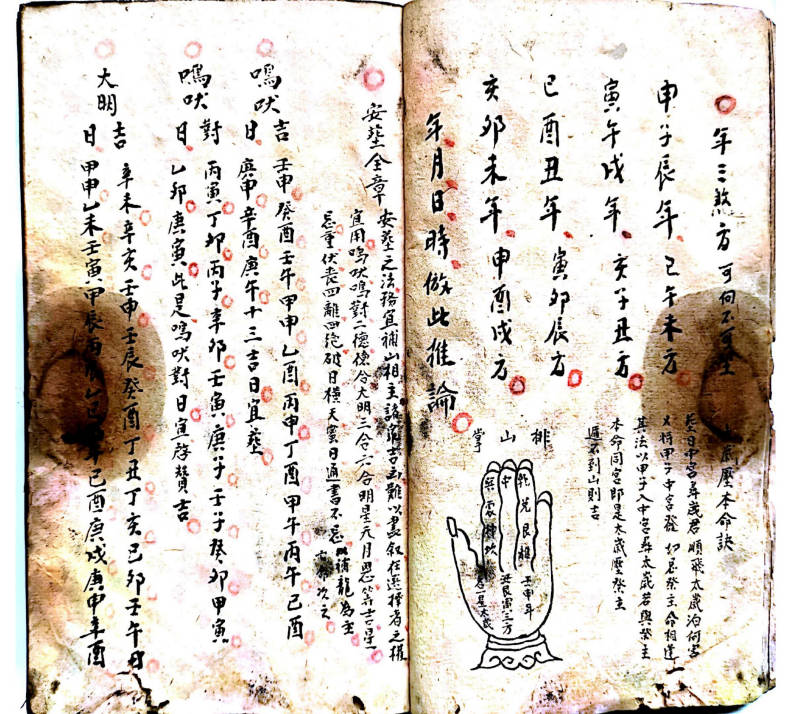 年三煞方 可向不可坐
申子辰年 巳午未方
寅午戌年 亥子丑方
巳酉丑年 寅卯辰方
亥卯未年 申酉戌方
年月日時倣此推論
太歲壓本命訣
葬日中宮尋歲君順飛太歲泊何宮
又將甲子中宮發 切忌祭主命相逢
其法以甲子入中宮尋太歲若與祭主
本命同宮即是太歲壓祭主
不到山則吉
排山掌
乾兌艮離
中
巽震坤坎
壬申年
丑艮寅三方
忌一星太歲
安塋全章
安塋之法務宜補山相主諸家吉凶難以盡叙在選擇者之權
宜用鳴吠鳴對二德德合大明三合六合明星天月恩等吉星
忌重伏喪四離四絕破日橫天 日通書不忌以補龍為主
次之
鳴吠吉日 壬申癸酉壬午甲申乙酉丙申丁酉甲午丙午己酉
庚申辛酉庚午十三吉日宜塋
鳴吠對日 丙寅丁卯丙子辛卯壬寅庚子壬子癸卯甲寅
乙卯庚寅此是鳴吠對日宜啓攢吉
大明吉日 辛未辛亥壬申壬辰癸酉丁丑丁亥己卯壬午日
甲申乙未壬寅甲辰 己酉庚戌庚申辛酉